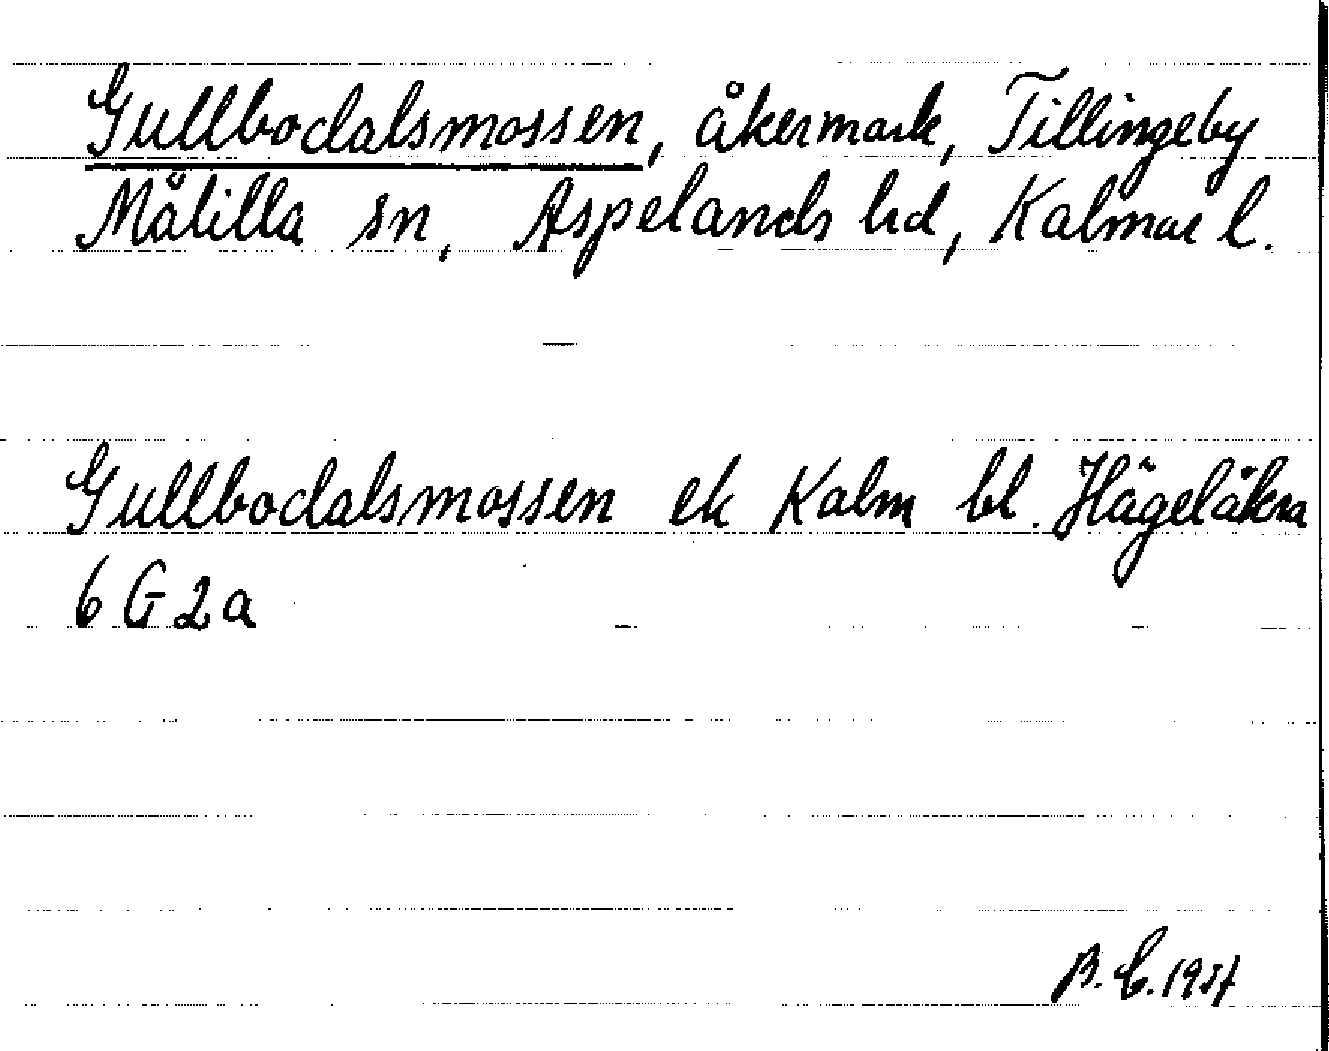 Gullbodalsmossen, åkermark, Tillingeby
Målilla sn, Aspelands hd, Kalmar l.
Gullbodalsmossen ek Kalm bl. Hägelåkra
6 G 2 a
B. C. 1957